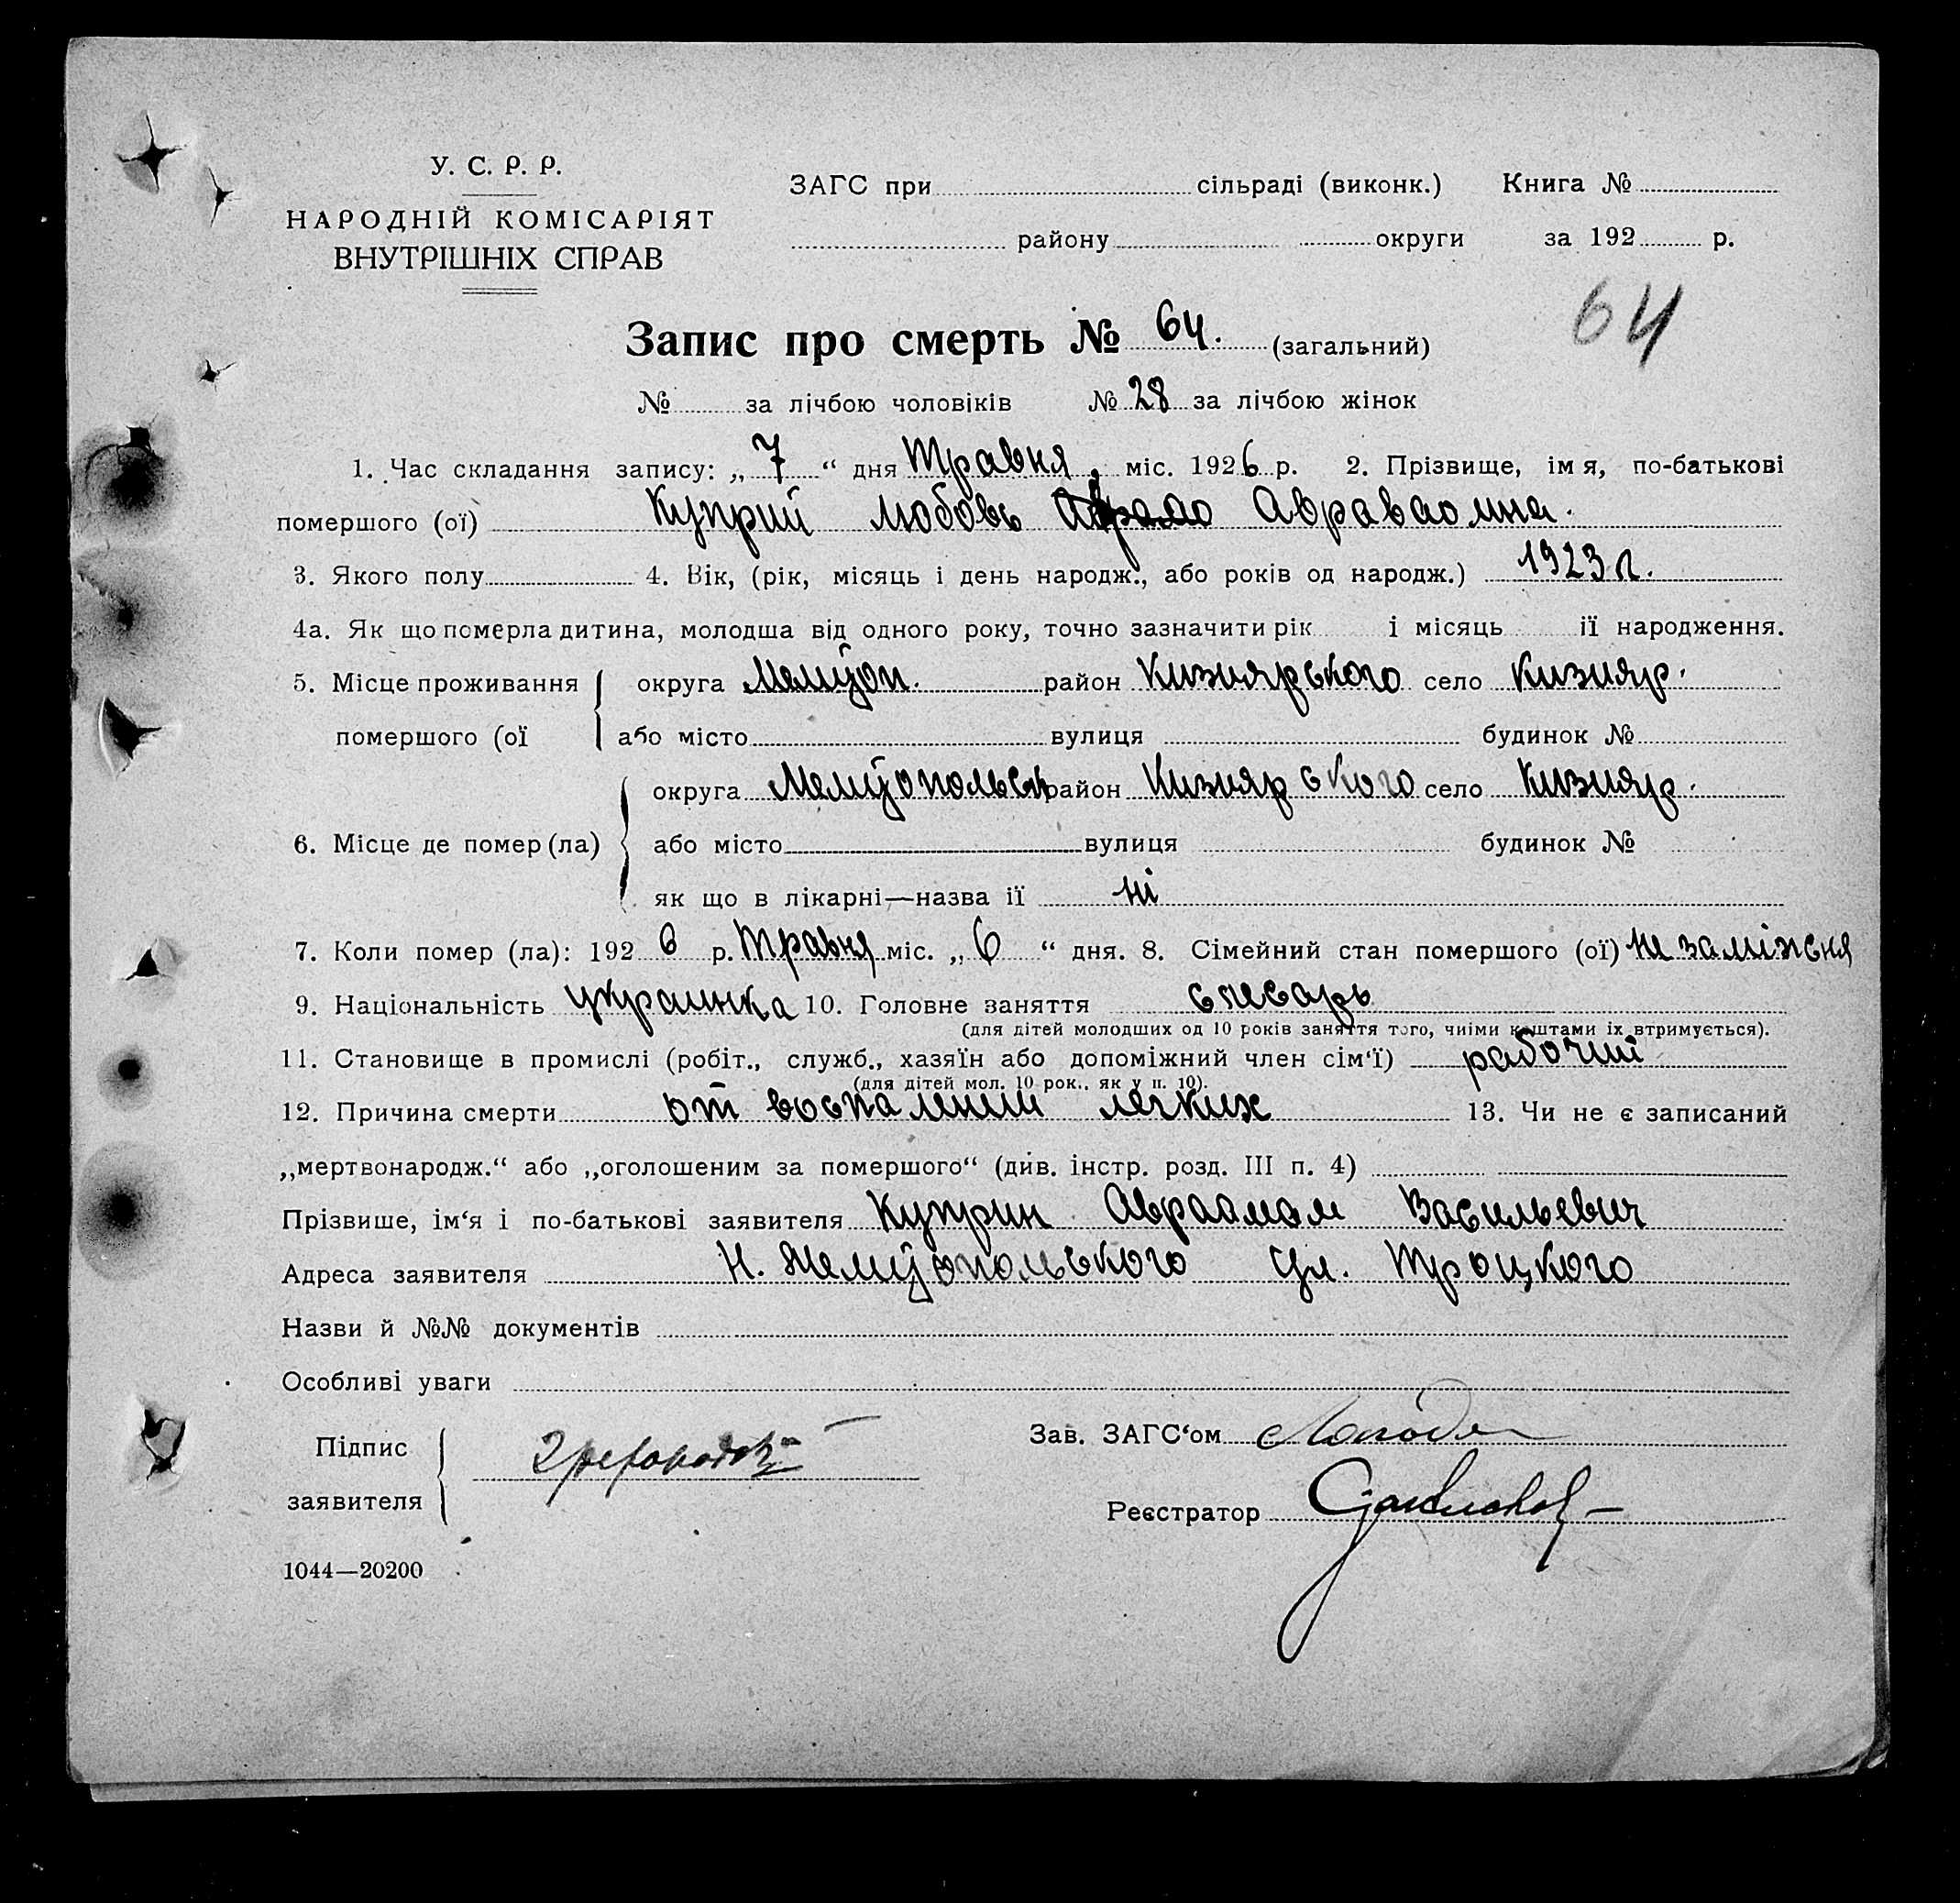 У. С. Р. Р.
НАРОДНІЙ КОМІСАРІЯТ
ВНУТРІШНІХ СПРАВ
ЗАГС при сільраді (виконк.) Книга №
району округи за 192 р.
64
Запис про смерть № 64. (загальний)
№ за лічбою чоловіків № 28 за лічбою жінок
1. Час складання запису: „ 7 “ дня Травня міс. 1926 р. 2. Прізвище, імя, по-батькові
помершого (ої) Куприй Любовь Авраваомна.
3. Якого полу 4. Вік, (рік, місяць і день народж., або років од народж.) 1923 г.
4а. Як що померла дитина, молодша від одного року, точно зазначити рік і місяць її народження.
5. Місце проживання округа Мелітоп. район Кизиярського село Кизияр.
помершого (ої або місто вулиця будинок №
округа Мелітопольськ район Кизиярського село Кизияр.
6. Місце де помер (ла) або місто вулиця будинок №
як що в лікарні—назва її ні
7. Коли помер (ла): 192 6 р. Травня міс. „ 6 “ дня. 8. Сімейний стан помершого (ої) не заміжня
9. Національність украинка 10. Головне заняття слесарь
(для дітей молодших од 10 років заняття того, чиіми коштами їх втримується).
11. Становище в промислі (робіт., служб., хазяїн або допоміжний член сім‘ї) рабочий
(для дітей мол. 10 рок., як у п. 10).
12. Причина смерти от воспалений легких 13. Чи не є записаний
„мертвонародж.“ або „оголошеним за помершого“ (див. інстр. розд. III п. 4)
Прізвише, ім‘я і по-батькові заявителя Куприн Авраамам Васильевич
Адреса заявителя Н. Мелітопольського ул. Троцкого
Назви й №№ документів
Особливі уваги
Підпис
заявителя
Зав. ЗАГС‘ом
Реєстратор
1044—20200